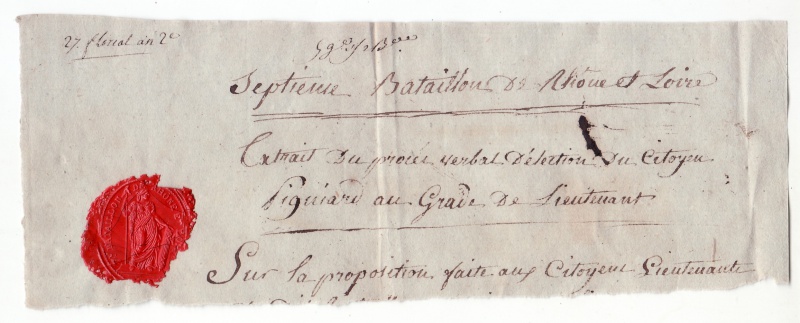 27. floreal an 2e
Septieme Bataillon de Rhône et Loire
Extrait du procès verbal d'élection du Citoyen
Piguiard au Grade de Lieutenant
Sur la proposition faite aux Citoyens Lieutenants